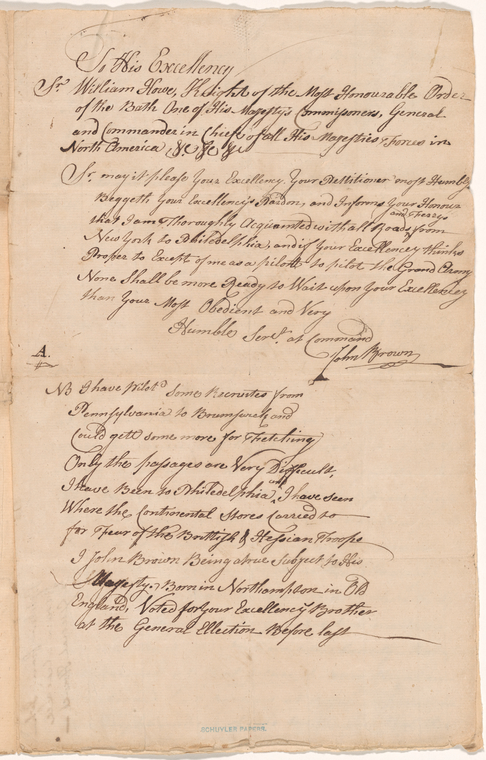 To His Excellency
Sr. William Howe, Knight of the Most Honourable Order
of the Bath One of His Magesty's Commissoners, General
and Commander in Cheef of all His Magesties Forces in
North America &c &c &c
Sr. may it please Your Excellency Your Pettitioner most Humbly
Beggeth Your Excellencys Pardon, and Informs Your Honour
and Ferrys
that I am Thoroughly Acquanted with all Roads from
New York to Philedelphia, and if Your Excellencey thinks
Proper to Except of me as a pilott to pilot the Grand Army
None Shall be more Ready to Wait upon Your Excellencey
than Your Most Obedient and Very
Humble Servt. at Command
John Brown
A.
NB I have Pilotd some Recruites from
Pennsylvania to Brumswick and
Could gett some more for Fhetching
Only the passages are Very Difficult,
I have Been to Philedelphia, and I have seen
Where the Continental Stores Carried to
for Fear of the Brittish & Hessian Troops
I John Brown Being a true Subject to His
Magesty, Born in Northampton in Old
England, Voted for Your Excellency's Brother
at the General Ellection Before last
SCHUYLER PAPERS.